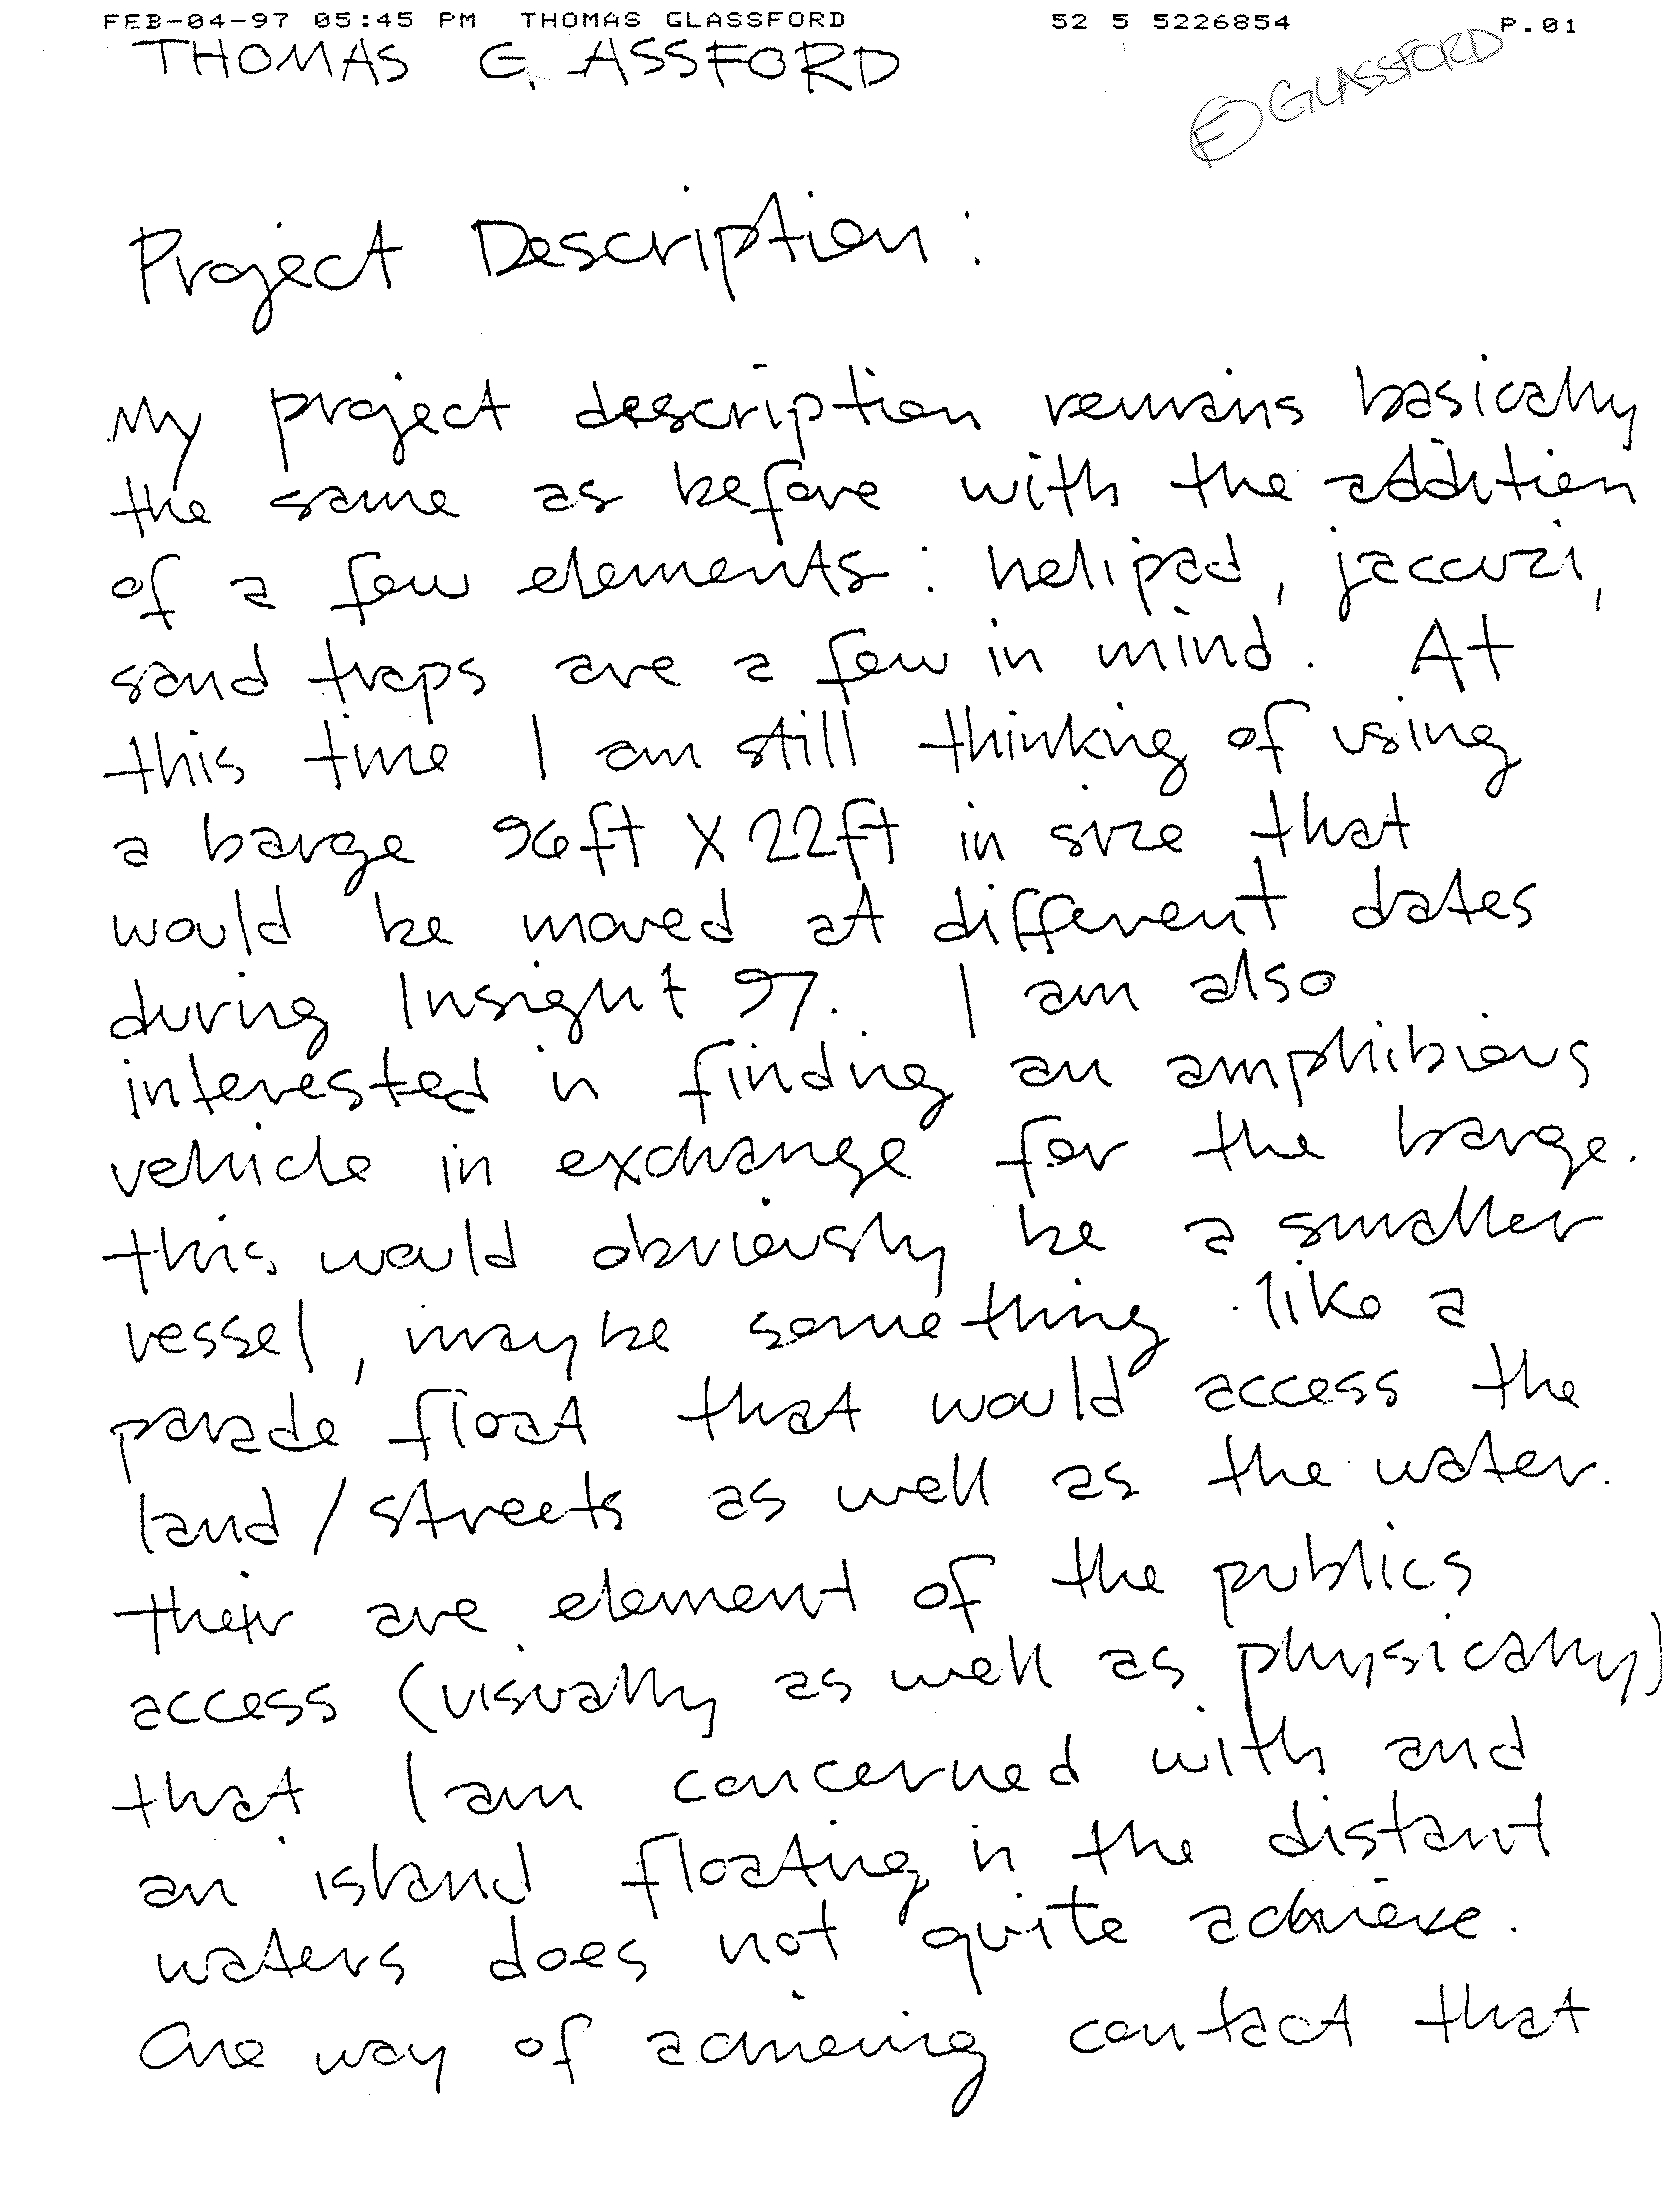 FEB-04-97 05:45 PM THOMAS GLASSFORD 52 5 5226854 P.01
THOMAS GLASSFORD
E GLASSFORD
Project Description:
My project description remains basically
the same as before with the addition
of a few elements: helipad, jaccuzi,
sand traps are a few in mind. At
this time I am still thinking of using
a barge 96ft X 22ft in size that
would be moved at different dates
during Insight 97. I am also
interested in finding an amphibious
vehicle in exchange for the barge.
this would obviously be a smaller
vessel, maybe something like a
parade float that would access the
land/streets as well as the water.
their are element of the publics
access (visually as well as physically)
that I am concerned with and
an island floating in the distant
waters does not quite achieve.
One way of achieving contact that